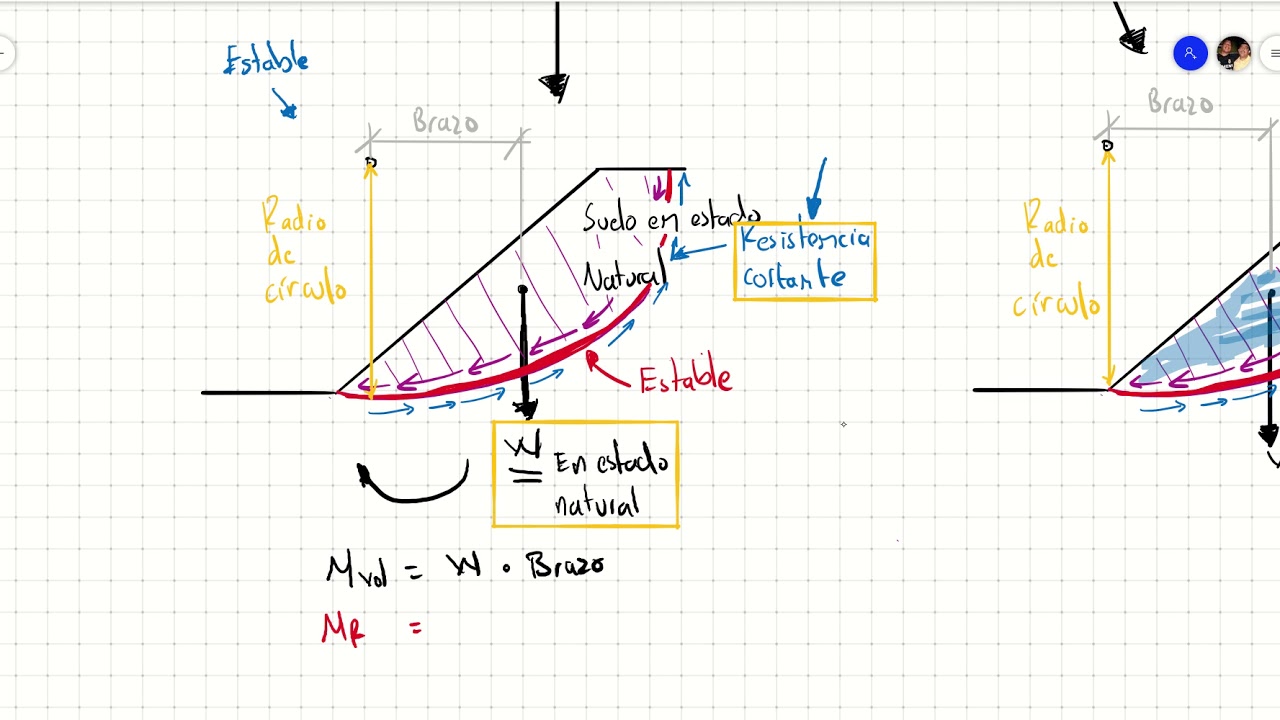 Estable
Brazo
Radio
de
círculo
Suelo en estado
Natural
Resistencia
cortante
Estable
W
En estado
natural
Mvol = W • Brazo
MR =
Brazo
Radio
de
círculo